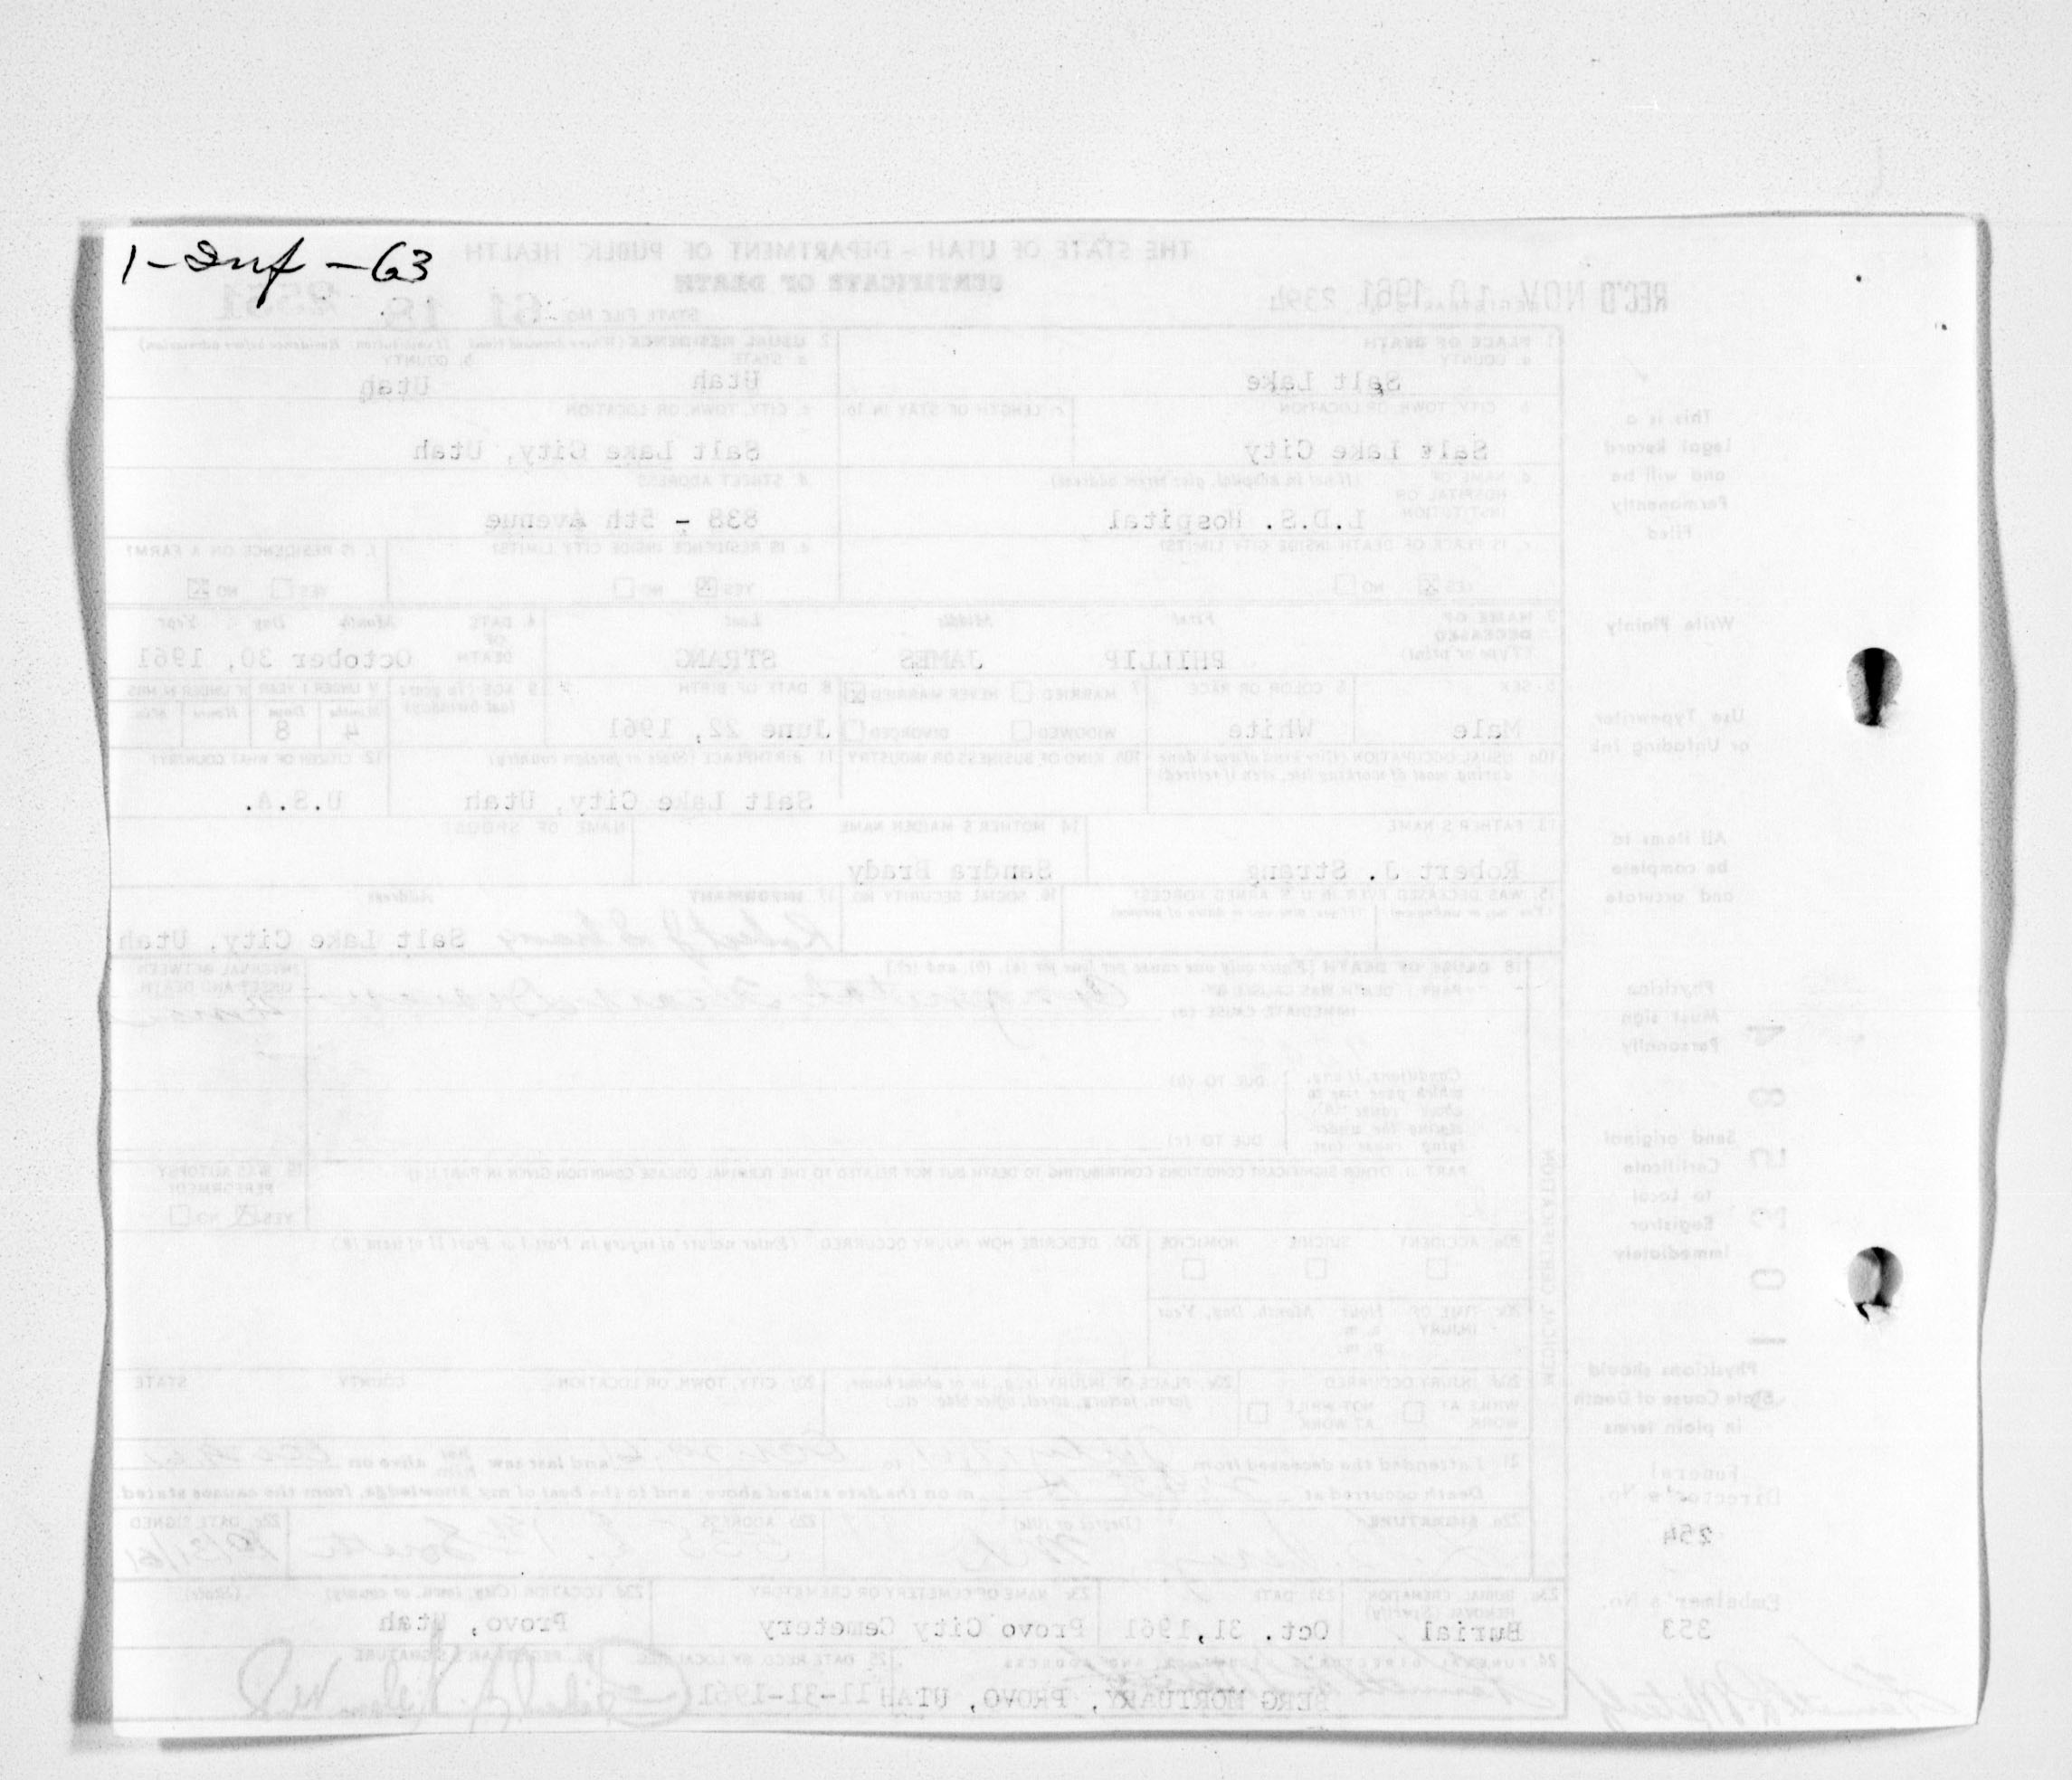 1-Inf-63
THE STATE OF UTAH - DEPARTMENT OF PUBLIC HEALTH
CERTIFICATE OF DEATH
REC'D NOV 10 1961
STATE FILE No. 61 18
1. PLACE OF DEATH
a. COUNTY
Salt Lake
2. USUAL RESIDENCE (Where deceased lived. If institution: Residence before admission)
a. STATE
Utah
b. COUNTY
Utah
b. CITY, TOWN, OR LOCATION
Salt Lake City
c. LENGTH OF STAY IN 1b
c. CITY, TOWN, OR LOCATION
Salt Lake City, Utah
d. NAME OF HOSPITAL OR INSTITUTION (If not in hospital, give street address)
L.D.S. Hospital
d. STREET ADDRESS
838 - 5th Avenue
e. IS PLACE OF DEATH INSIDE CITY LIMITS?
YES NO
e. IS RESIDENCE INSIDE CITY LIMITS?
YES NO
f. IS RESIDENCE ON A FARM?
YES NO
3. NAME OF DECEASED (Type or print)
First Middle Last
PHILLIP JAMES STRANG
4. DATE OF DEATH
Month Day Year
October 30, 1961
5. SEX
Male
6. COLOR OR RACE
White
7. MARRIED NEVER MARRIED
WIDOWED DIVORCED
8. DATE OF BIRTH
June 22, 1961
9. AGE (In years last birthday)
IF UNDER 1 YEAR IF UNDER 24 HRS.
Months Days Hours Min.
4 8
10a. USUAL OCCUPATION (Give kind of work done during most of working life, even if retired)
10b. KIND OF BUSINESS OR INDUSTRY
11. BIRTHPLACE (State or foreign country)
Salt Lake City, Utah
12. CITIZEN OF WHAT COUNTRY?
U.S.A.
13. FATHER'S NAME
Robert J. Strang
14. MOTHER'S MAIDEN NAME
Sandra Brady
NAME OF SPOUSE
15. WAS DECEASED EVER IN U. S. ARMED FORCES?
16. SOCIAL SECURITY NO.
17. INFORMANT Address
Robert J. Strang Salt Lake City, Utah
18. CAUSE OF DEATH [Enter only one cause per line for (a), (b), and (c).]
PART I. DEATH WAS CAUSED BY:
IMMEDIATE CAUSE (a)
INTERVAL BETWEEN ONSET AND DEATH
Conditions, if any, which gave rise to above cause (a), stating the under-lying cause last.
DUE TO (b)
DUE TO (c)
PART II. OTHER SIGNIFICANT CONDITIONS CONTRIBUTING TO DEATH BUT NOT RELATED TO THE TERMINAL DISEASE CONDITION GIVEN IN PART I(a)
19. WAS AUTOPSY PERFORMED?
YES NO
20a. ACCIDENT SUICIDE HOMICIDE
20b. DESCRIBE HOW INJURY OCCURRED. (Enter nature of injury in Part I or Part II of item 18.)
20c. TIME OF INJURY
Hour Month, Day, Year
a. m.
p. m.
20d. INJURY OCCURRED
WHILE AT WORK NOT WHILE AT WORK
20e. PLACE OF INJURY (e.g., in or about home, farm, factory, street, office bldg., etc.)
20f. CITY, TOWN, OR LOCATION COUNTY STATE
21. I attended the deceased from to and last saw him alive on
Death occurred at m on the date stated above, and to the best of my knowledge, from the causes stated.
22a. SIGNATURE (Degree or title)
22b. ADDRESS
22c. DATE SIGNED
10/31/61
23a. BURIAL, CREMATION, REMOVAL (Specify)
Burial
23b. DATE
Oct. 31, 1961
23c. NAME OF CEMETERY OR CREMATORY
Provo City Cemetery
23d. LOCATION (City, town, or county) (State)
Provo, Utah
24. FUNERAL DIRECTOR'S SIGNATURE AND ADDRESS
BERG MORTUARY, PROVO, UTAH
25. DATE RECD BY LOCAL REG.
11-31-1961
26. REGISTRAR'S SIGNATURE
MEDICAL CERTIFICATION
This is a
legal Record
and will be
Permanently
Filed
Write Plainly
Use Typewriter
or Unfading Ink
All items to
be complete
and accurate
Physician
Must sign
Personally
Send original
Certificate
to Local
Registrar
Immediately
Physicians should
State Cause of Death
in plain terms
Funeral
Director's No.
254
Embalmer's No.
353